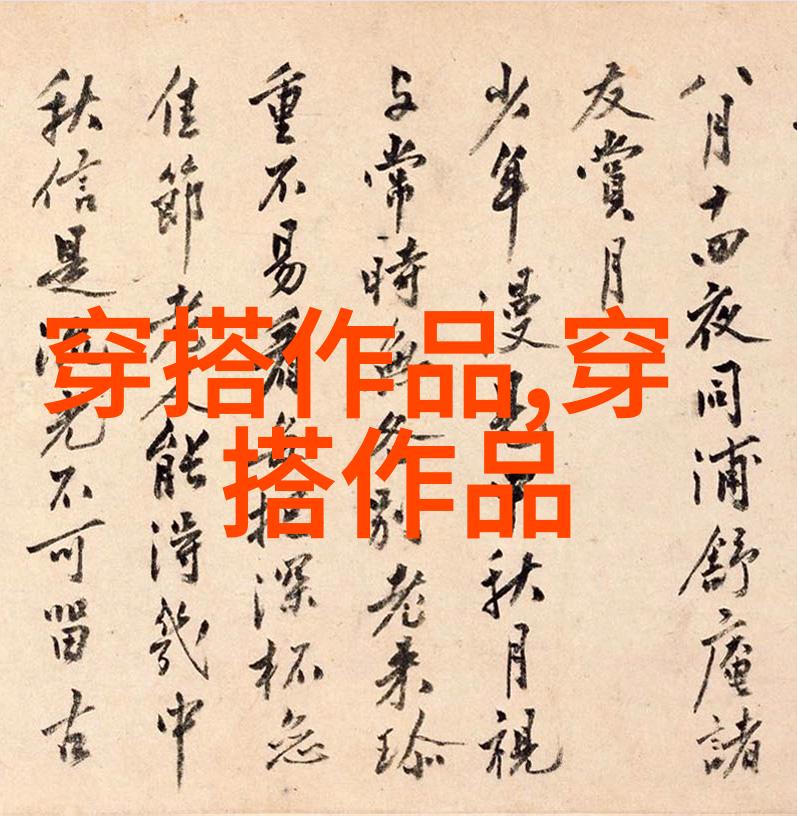 八月十四夜同浦舒庵諸
友賞月
少年漫中秋月視
与常時無別老来珍
重不易看深杯
佳節老人能得幾中
秋信是流光不可留古
穿搭作品,穿
搭作品